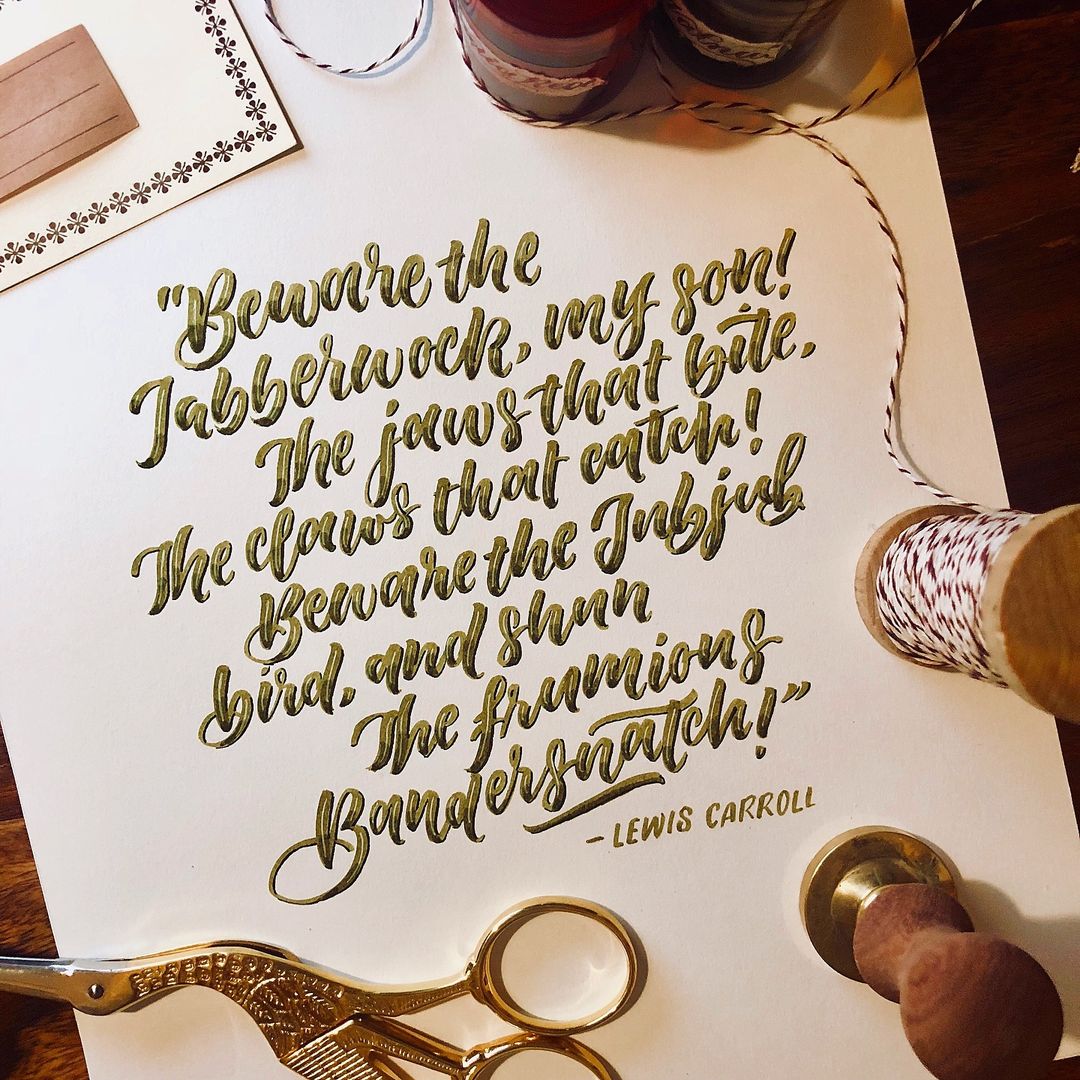 "Beware the
Jabberwock, my son!
The jaws that bite,
The claws that catch!
Beware the Jubjub
bird, and shun
The frumious
Bandersnatch!"
- LEWIS CARROLL